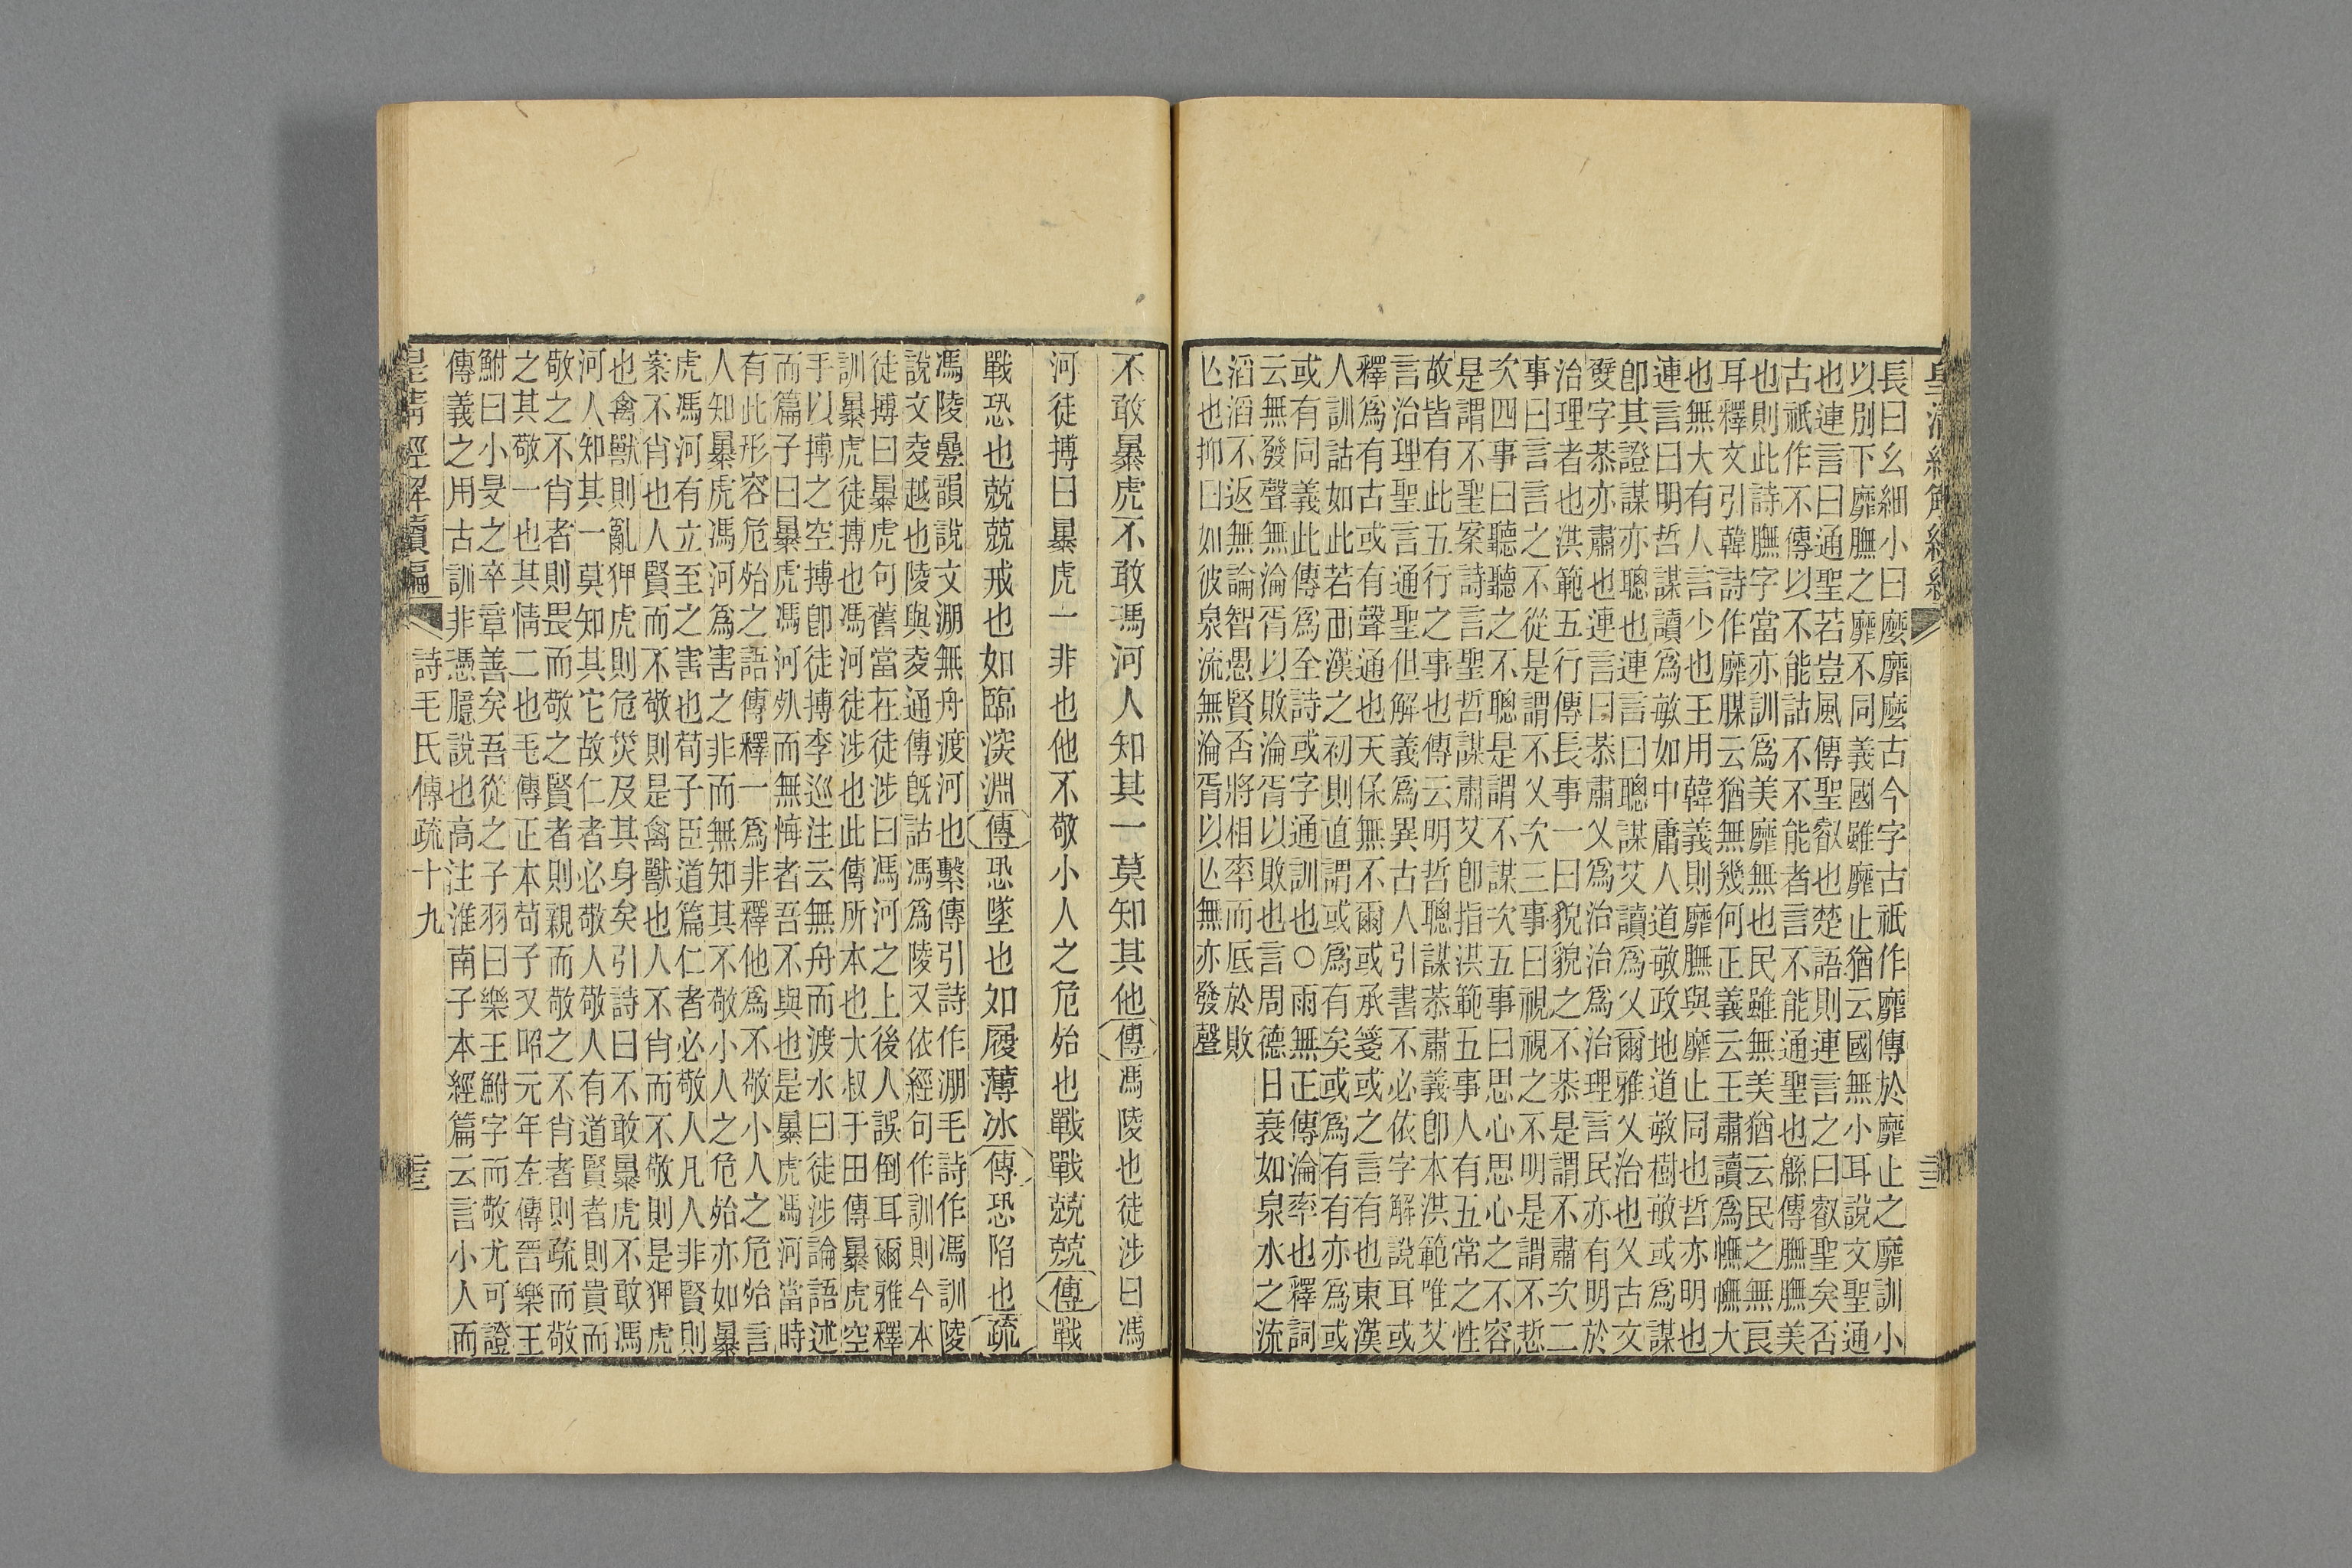 皇清經解續編
長曰幺細小曰麼靡麼古今字古祇作靡傳於靡止之靡訓小
以別下靡膴之靡不同義國雖靡止猶云國無小耳說文聖通
也連言曰通聖若豈風傳聖叡也楚語則連言之曰叡聖矣否
古祇作不傳以不能詁不不能者言不能通聖也緜傳膴膴美
也則此詩膴字當亦訓爲美靡無也民雖無美猶云民之無良
耳釋文引韓詩作靡腜云猶無幾何正義云王肅讀爲幠幠大
也無大有人言少也王用韓義則靡膴與靡止同也哲亦明也
連言曰明哲謀讀爲敏如中庸人道敏政地道敏樹敏或爲謀
卽其證謀亦聰也連言曰聰謀艾讀爲乂爾雅乂治也乂古文
發字恭亦肅也連言曰恭肅乂爲治治爲治理言民亦有明於
治理者也洪範五行傳長事一曰貌貌之不恭是謂不肅次二
事曰言言之不從是謂不乂次三事曰視視之不明是謂不悊
次四事曰聽聽之不聰是謂不謀次五事曰思心思心之不容
是謂不聖案詩言聖哲謀肅艾卽指洪範五事人有五常之性
故皆有此五行之事也傳云明哲聰謀恭肅義卽本洪範唯艾
言治理聖言通聖但解義爲異古人引書不必依字解說耳或
釋爲有古或有聲通也天保無不爾或承箋或之言有也東漢
人訓詁如此若西漢之初則直謂或爲有矣或爲有有亦爲或
或有同義此傳爲全詩或字通訓也○雨無正傳淪率也釋詞
云無發聲無淪胥以敗淪胥以敗也言周德日衰如泉水之流
滔滔不返無論智愚賢否將相率而底於敗
亾也抑曰如彼泉流無淪胥以亾無亦發聲
不敢暴虎不敢馮河人知其一莫知其他傳馮陵也徒涉曰馮
河徒搏曰暴虎一非也他不敬小人之危殆也戰戰兢兢傳戰
戰恐也兢兢戒也如臨深淵傳恐墜也如履薄冰傳恐陷也疏
馮陵曡韻說文淜無舟渡河也繫傳引詩作淜毛詩作馮訓陵
說文夌越也陵與夌通傳旣詁馮爲陵又依經句作訓則今本
徒搏曰暴虎句舊當在徒涉曰馮河之上後人誤倒耳爾雅釋
訓暴虎徒搏也馮河徒涉也此傳所本也大叔于田傳暴虎空
手以搏之空搏卽徒搏李巡注云無舟而渡水曰徒涉論語述
而篇子曰暴虎馮河死而無悔者吾不與也是暴虎馮河當時
有此形容危殆之語傳釋一爲非釋他爲不敬小人之危殆言
人知暴虎馮河爲害之非而無知其不敬小人之危殆亦如暴
虎馮河有立至之害也荀子臣道篇仁者必敬人凡人非賢則
案不肖也人賢而不敬則是禽獸也人不肖而不敬則是狎虎
也禽獸則亂狎虎則危災及其身矣引詩曰不敢暴虎不敢馮
河人知其一莫知其它故仁者必敬人敬人有道賢者則貴而
敬之不肖者則畏而敬之賢者則親而敬之不肖者則疏而敬
之其敬一也其情二也毛傳正本荀子又昭元年左傳晉樂王
鮒曰小旻之卒章善矣吾從之子羽曰樂王鮒字而敬尤可證
傳義之用古訓非憑臆說也高注淮南子本經篇云言小人而
皇清經解續編 詩毛氏傳疏十九